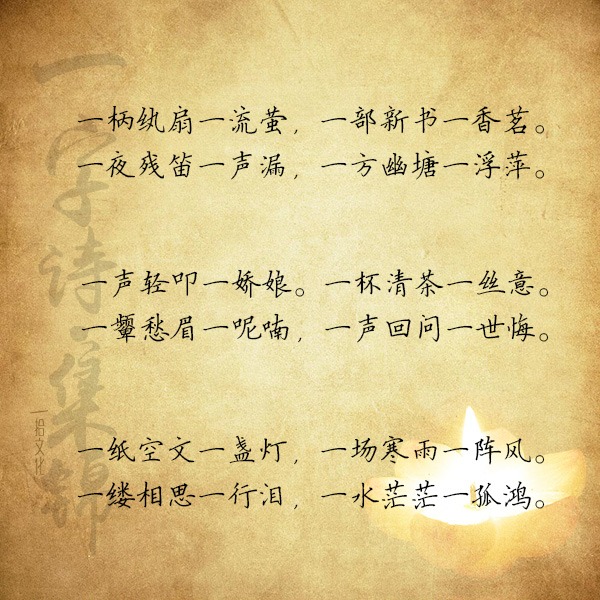 一字诗集锦
一拾文化
一柄纨扇一流萤，一部新书一香茗。
一夜残笛一声漏，一方幽塘一浮萍。
一声轻叩一娇娘。一杯清茶一丝意。
一颦愁眉一呢喃，一声回问一世悔。
一纸空文一盏灯，一场寒雨一阵风。
一缕相思一行泪，一水茫茫一孤鸿。